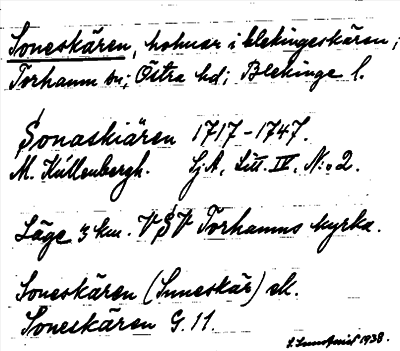 Soneskären, holmar i Blekingeskären;
Torhamn sn; Östra hd; Blekinge l.
Sonaskiären 1717-1747.
M. Kullenbergh. Sj.A, Litt. IV. N:o 2.
Läge 3 km. VSV Torhamns kyrka.
Soneskären (Suneskär) ek.
Soneskären G. 11.
1938.